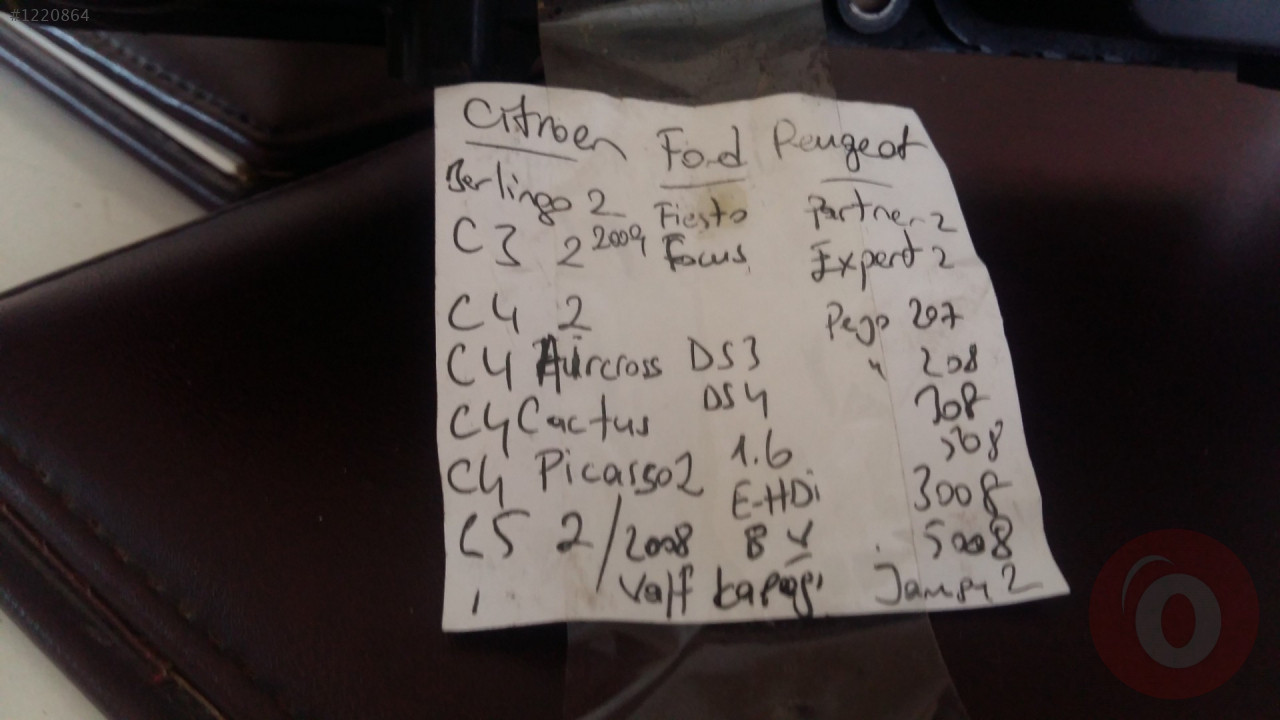 #1220864
Citroen Ford Peugeot
Berlingo 2 Fiesta Partner 2
C3 2 2009 Focus Expert 2
C4 2 Pejo 207
C4 Aircross DS3 " 208
C4 Cactus DS4 308
C4 Picasso 2 1.6 508
E-HDi 3008
C5 2 / 2008 8 V 5008
Valf kapağı Jampy 2